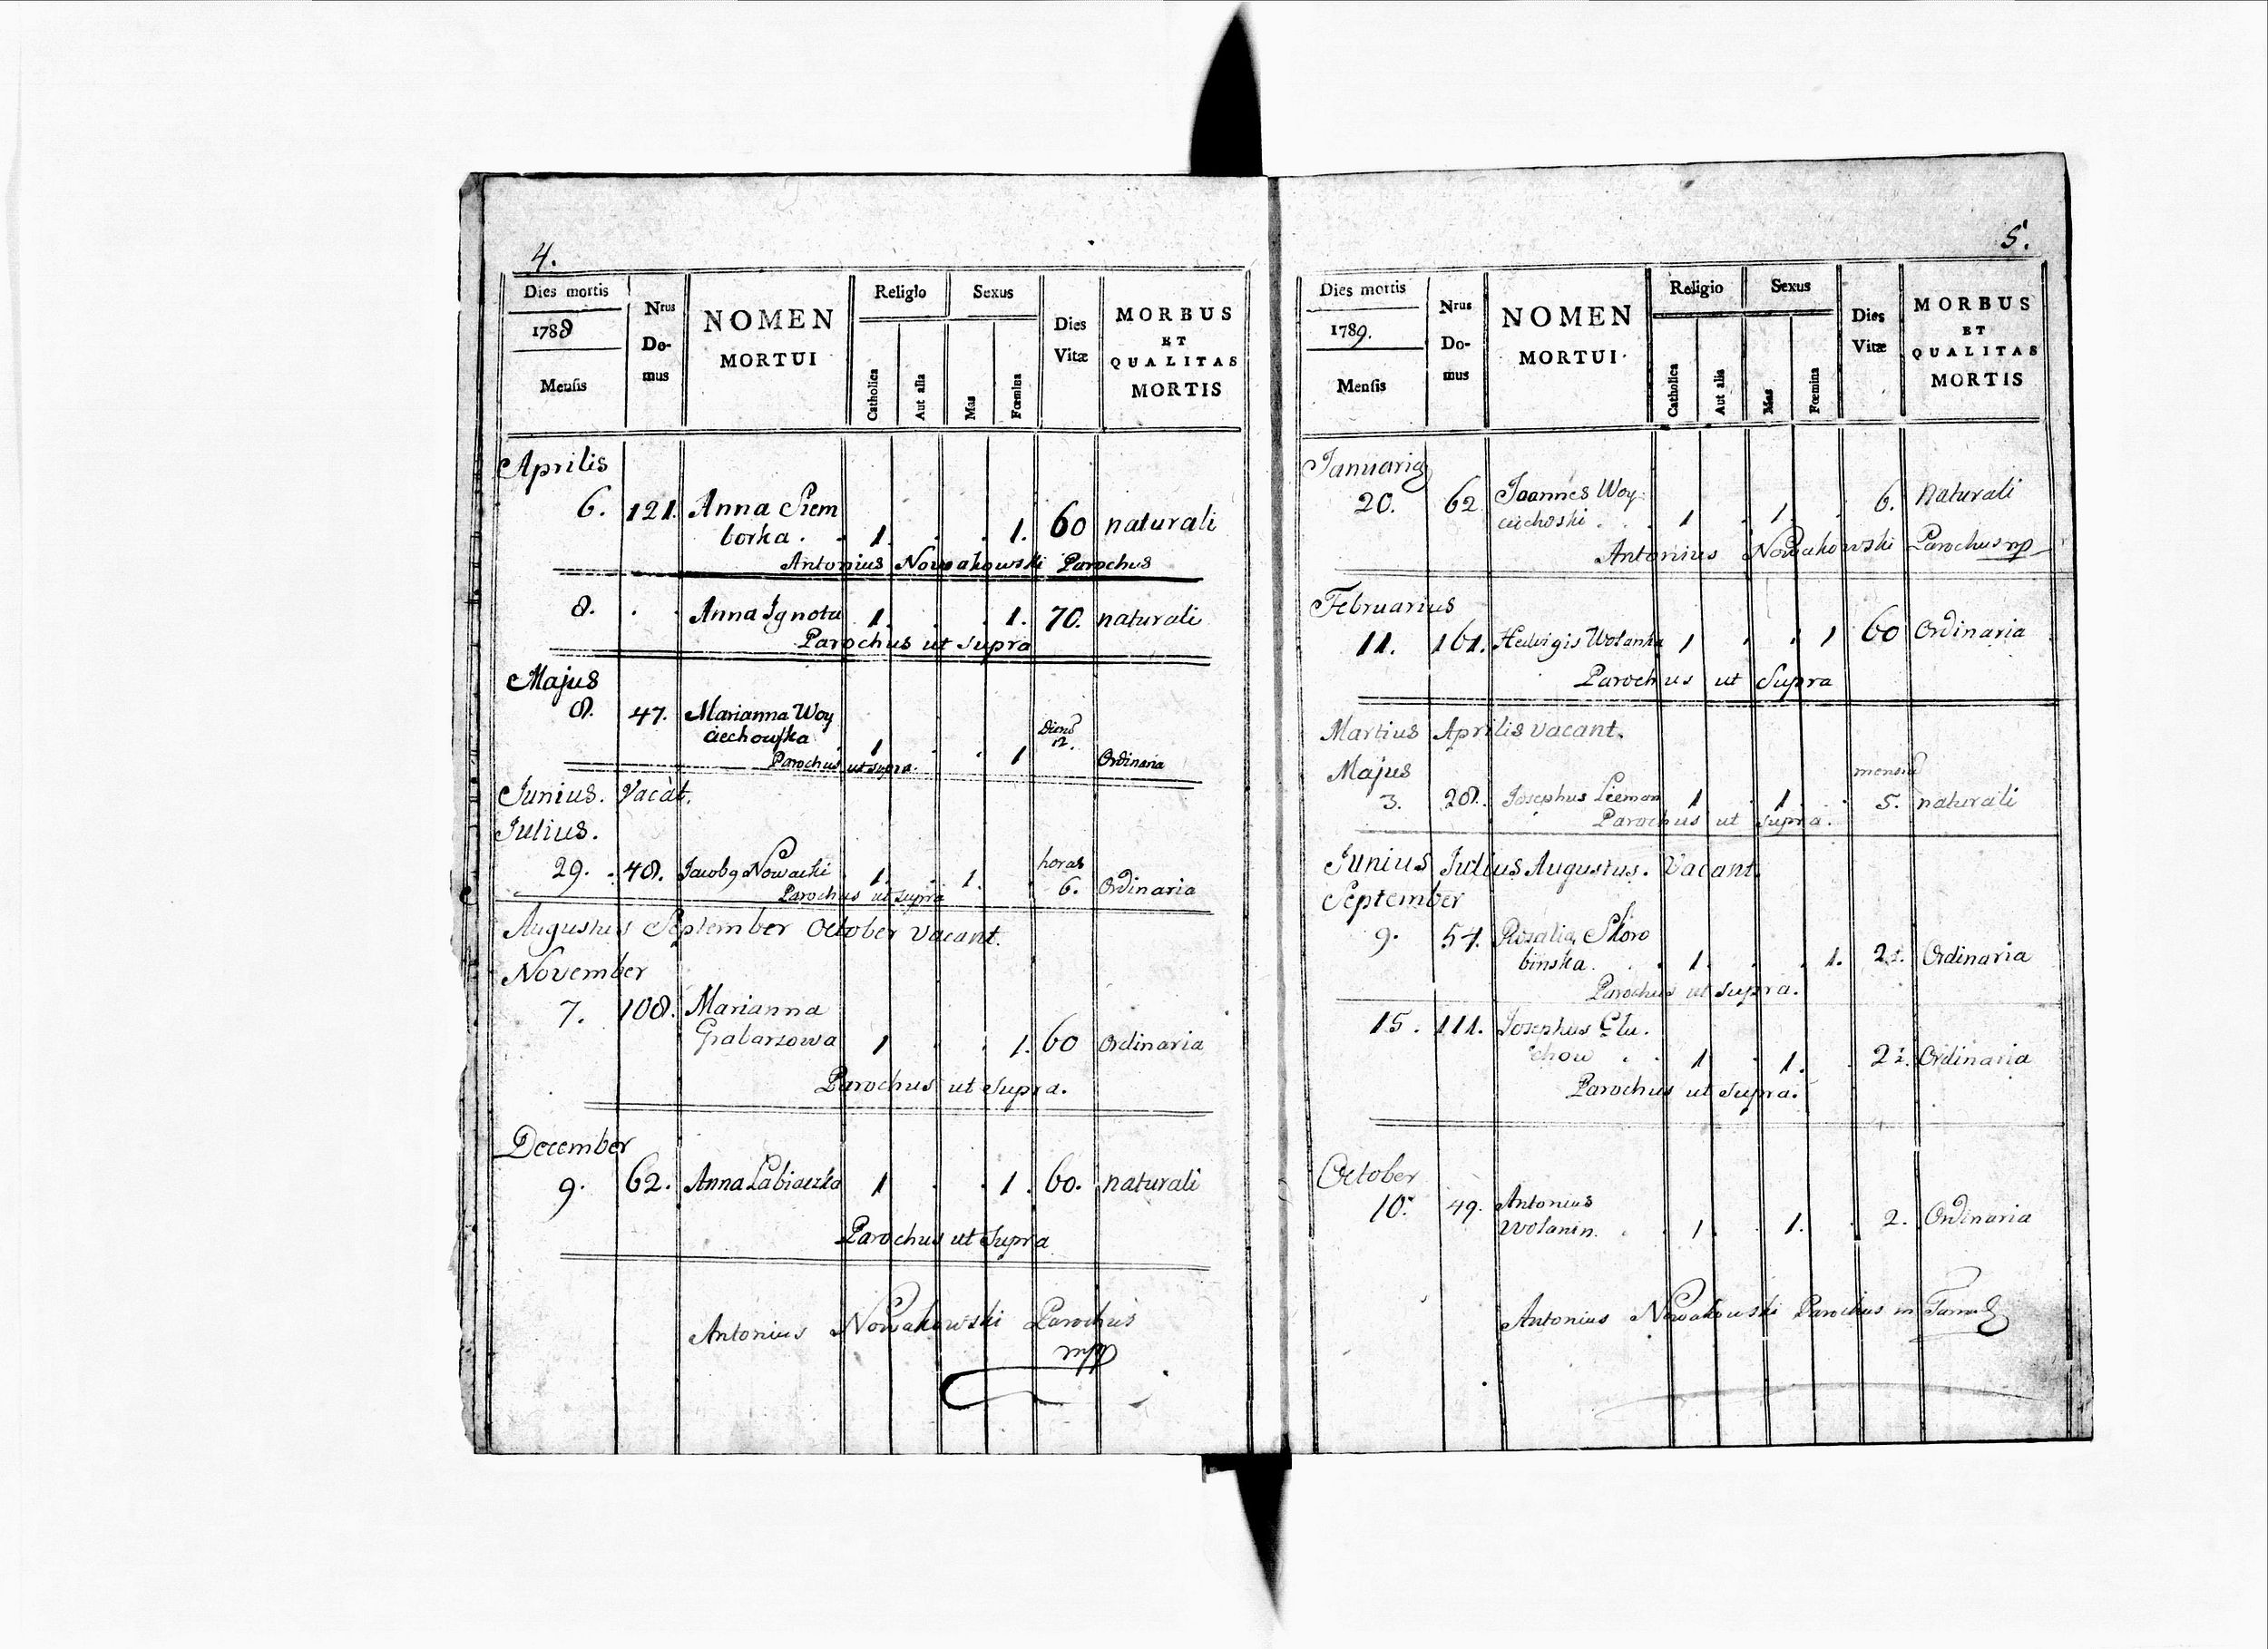 4.
Dies mortis
1788
Mensis
Nrus
Do-
mus
NOMEN
MORTUI
Religio
Catholica
Aut alia
Sexus
Mas
Fœmina
Dies
Vitæ
MORBUS
ET
QUALITAS
MORTIS
Aprilis
6. 121. Anna Siem
borka . 1. 1. 60 naturali
Antonius Nowakowski Parochus
8. Anna Ignota 1. 1. 70. naturali
Parochus ut supra
Majus
8. 47. Marianna Woy
ciechowska 1 1 12. Ordinaria
Parochus ut supra.
Junius. Vacat.
Julius.
29. 48. Jacobg Nowacki 1. 1. horas 6. Ordinaria
Parochus ut supra
Augustus September October vacant.
November
7. 108. Marianna
Grabarzowa 1 1. 60 Ordinaria
Parochus ut supra.
December
9. 62. Anna Labiaczka 1 1. 60. naturali
Parochus ut Supra
Antonius Nowakowski Parochus
mpp
5.
Dies mortis
1789.
Mensis
Nrus
Do-
mus
NOMEN
MORTUI
Religio
Catholica
Aut alia
Sexus
Mas
Fœmina
Dies
Vitæ
MORBUS
ET
QUALITAS
MORTIS
Januarig
20. 62 Joannes Woy
ciechoski . 1 1. 6. naturali
Antonius Nowakowski Parochus mp
Februarius
11. 161. Hedvigis Wolanka 1 1 60 Ordinaria
Parochus ut Supra
Martius Aprilis vacant.
Majus
3. 28. Josephus 1 1 5. naturali
Parochus ut supra.
Junius Julius Augustus. Vacant.
September
9. 54. Rozalia Skoro
binska. 1. 1. Ordinaria
Parochus ut supra.
15. 111. Josephus Glu.
chow 1 1. Ordinaria
Parochus ut supra.
October
10. 49. Antonius
Wolanin. 1. 1. 2. Ordinaria
Antonius Nowakowski Parochus in